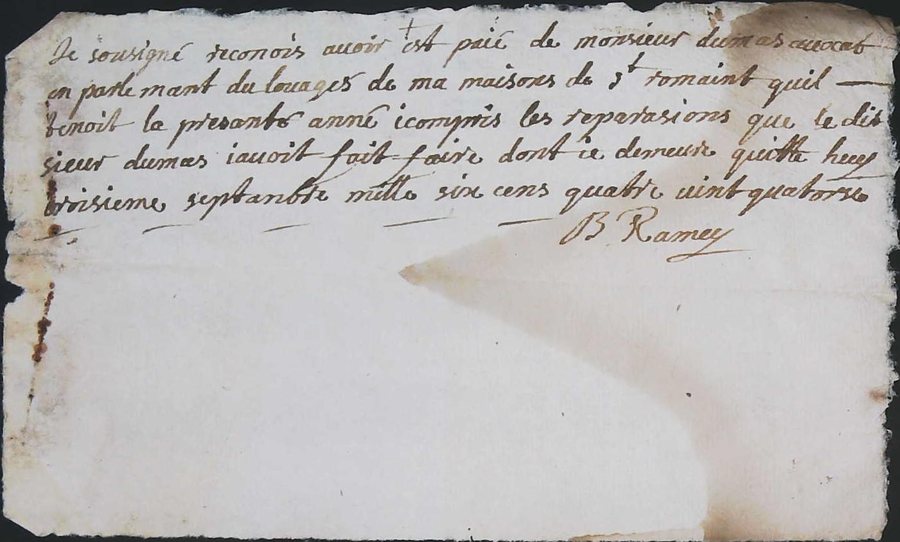 Je sousigné reconois avoir est paié de monsieur dumas avocat
en parlemant du louages de ma maisons de st romaint quil
tenoit la presante anné icompris les reparasions que le dit
sieur dumas iavoit fait faire dont ie demeure quitte huy
troisieme septanbre mille six cens quatre vint quatorse
B Ramey